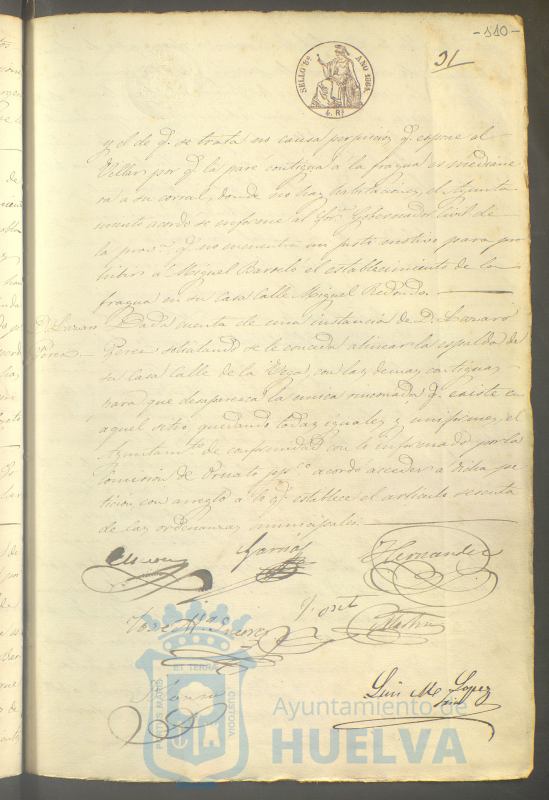 -110-
31
SELLO 8º AÑO 1861.
6. Rs
y el de q.e se trata no causa perjuicios q.e espone el
Villar por q.e la pare contigua a la fragua es mediane
ra a su corral, donde no hay habitaciones, el Ayunta
miento acordó se informe al Gobernador Civil de
la prov.a q.e no encuentra un justo motivo para pro
hibir a Miguel Barselo el establecimiento de la
fragua en su casa calle Miguel Redondo.
D. Lazaro Perea
Dada cuenta de una instancia de D. Lazaro
Perea solicitando se le conceda alinear la espalda de
su casa calle de la Vega, con las demas contiguas
para que desaparesca la unica rinconada q.e existe en
aquel sitio quedando todas iguales y uniformes, el
Ayuntam.to de conformidad con lo informado por la
Comision de Ornato acordó acceder a dicha pe
ticion con arreglo a lo q.e establece el articulo sesenta
de las ordenanzas municipales.
Garcia
Hernandez
José
Martin
Luis M. Lopez
PORTUS MARIS ET TERRAE CUSTODIA
Ayuntamiento de
HUELVA